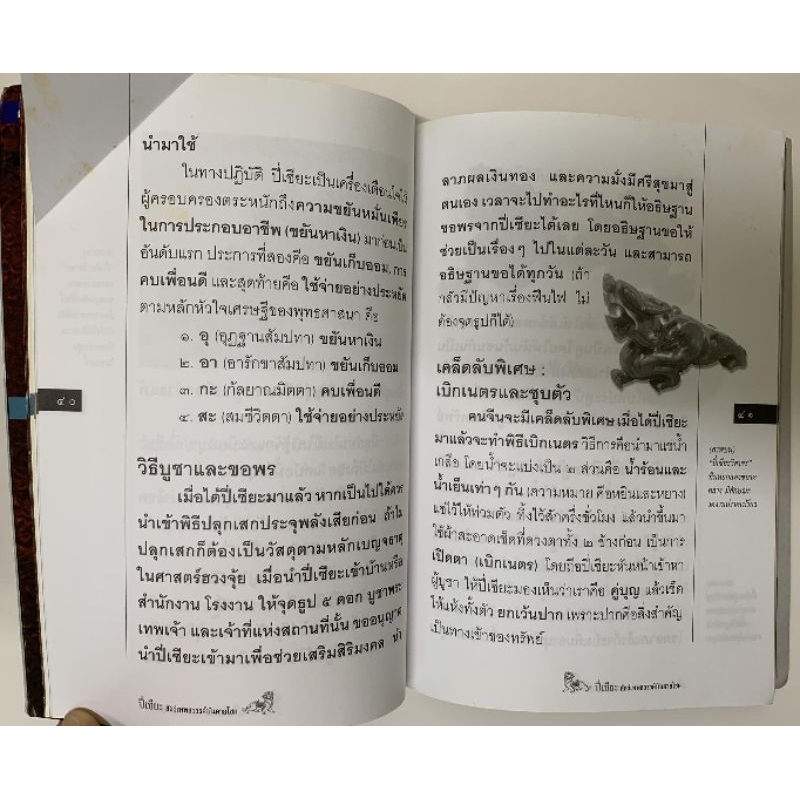 นำมาใช้
ในทางปฏิบัติ ปี่เซียะเป็นเครื่องเตือนใจให้
ผู้ครอบครองตระหนักถึงความขยันหมั่นเพียร
ในการประกอบอาชีพ (ขยันหาเงิน) มาก่อนเป็น
อันดับแรก ประการที่สองคือ ขยันเก็บออม, การ
คบเพื่อนดี และสุดท้ายคือ ใช้จ่ายอย่างประหยัด
ตามหลักหัวใจเศรษฐีของพุทธศาสนา คือ
๑. อุ (อุฏฐานสัมปทา) ขยันหาเงิน
๒. อา (อารักขาสัมปทา) ขยันเก็บออม
๓. กะ (กัลยาณมิตตา) คบเพื่อนดี
๔. สะ (สมชีวิตตา) ใช้จ่ายอย่างประหยัด
๔๐
วิธีบูชาและขอพร
เมื่อได้ปี่เซียะมาแล้ว หากเป็นไปได้ควร
นำเข้าพิธีปลุกเสกประจุพลังเสียก่อน ถ้าไม่
ปลุกเสกก็ต้องเป็นวัสดุตามหลักเบญจธาตุ
ในศาสตร์ฮวงจุ้ย เมื่อนำปี่เซียะเข้าบ้านหรือ
สำนักงาน โรงงาน ให้จุดธูป ๕ ดอก บูชาพระ
เทพเจ้า และเจ้าที่แห่งสถานที่นั้น ขออนุญาต
นำปี่เซียะเข้ามาเพื่อช่วยเสริมสิริมงคล นำ
ปี่เซียะ
ลาภผลเงินทอง และความมั่งมีศรีสุขมาสู่
ตนเอง เวลาจะไปทำอะไรที่ไหนก็ให้อธิษฐาน
ขอพรจากปี่เซียะได้เลย โดยอธิษฐานขอให้
ช่วยเป็นเรื่องๆ ไปในแต่ละวัน และสามารถ
อธิษฐานขอได้ทุกวัน (ถ้า
กลัวมีปัญหาเรื่องฟืนไฟ ไม่
ต้องจุดธูปก็ได้)
เคล็ดลับพิเศษ :
เบิกเนตรและชุบตัว
คนจีนจะมีเคล็ดลับพิเศษ เมื่อได้ปี่เซียะ
มาแล้วจะทำพิธีเบิกเนตร วิธีการคือนำมาแช่น้ำ
เกลือ โดยน้ำจะแบ่งเป็น ๒ ส่วนคือ น้ำร้อนและ
น้ำเย็นเท่าๆ กัน (ความหมาย คือหยินและหยาง)
แช่ไว้ให้ท่วมตัว ทิ้งไว้สักครึ่งชั่วโมง แล้วนำขึ้นมา
ใช้ผ้าสะอาดเช็ดที่ดวงตาทั้ง ๒ ข้างก่อน เป็นการ
เปิดตา (เบิกเนตร) โดยถือปี่เซียะหันหน้าเข้าหา
ผู้บูชา ให้ปี่เซียะมองเห็นว่าเราคือ คู่บุญ แล้วเช็ด
ให้แห้งทั้งตัว ยกเว้นปาก เพราะปากคือสิ่งสำคัญ
เป็นทางเข้าของทรัพย์
๔๑
(ภาพบน)
ปี่เซียะ